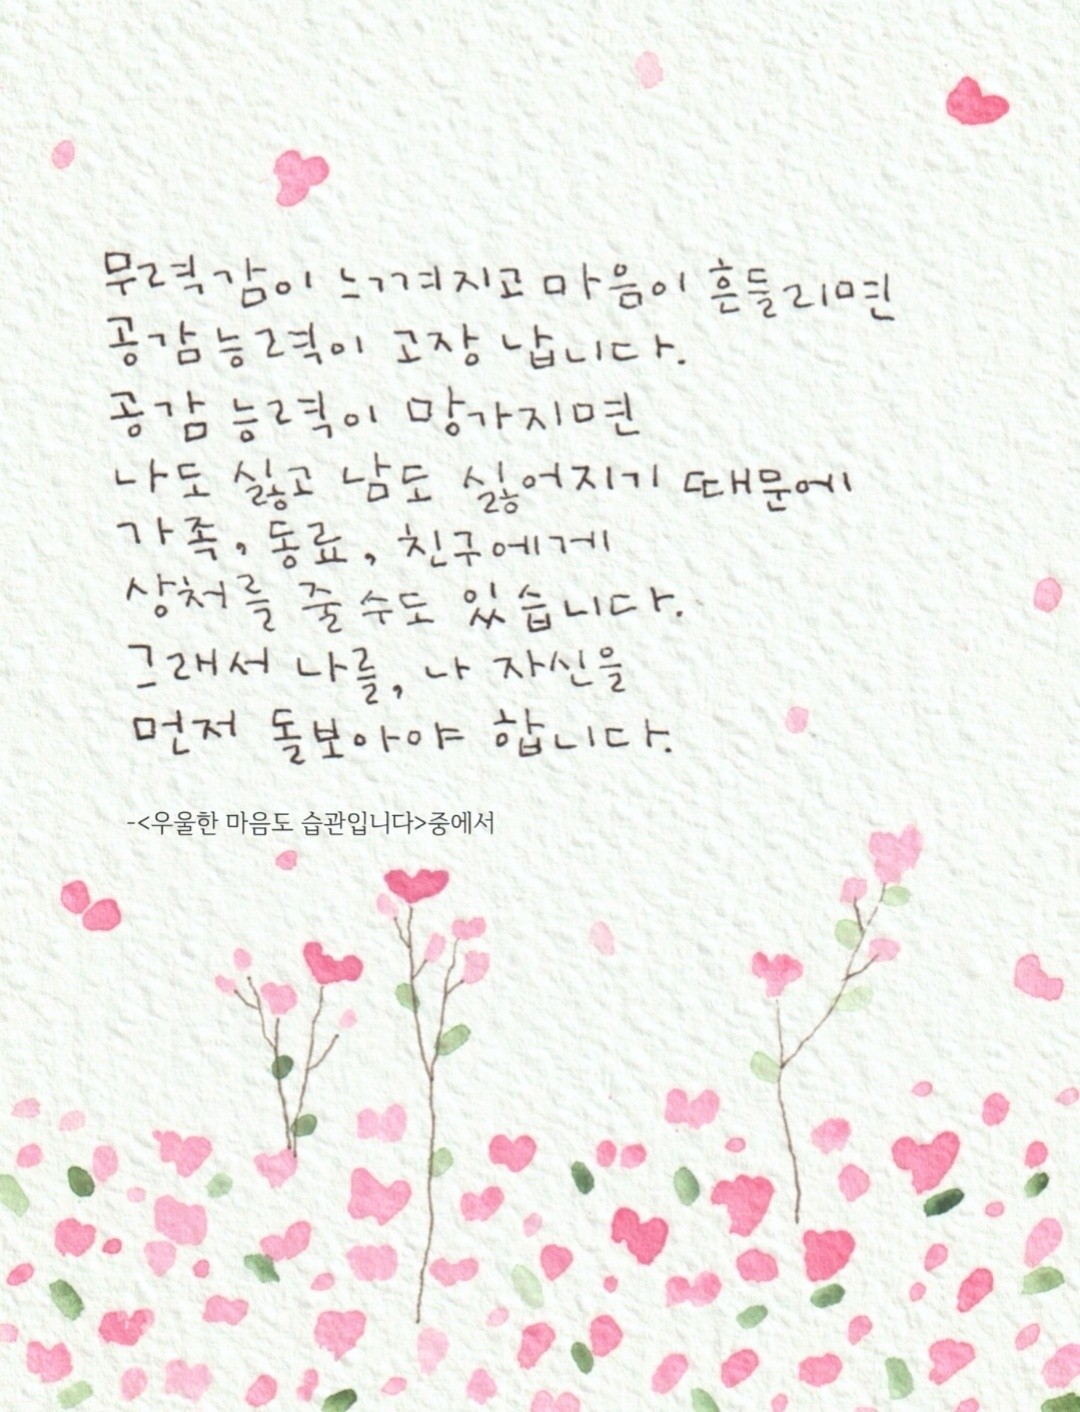 무력감이 느껴지고 마음이 흔들리면
공감능력이 고장 납니다.
공감 능력이 망가지면
나도 싫고 남도 싫어지기 때문에
가족, 동료, 친구에게
상처를 줄 수도 있습니다.
그래서 나를, 나 자신을
먼저 돌보아야 합니다.
-<우울한 마음도 습관입니다>중에서